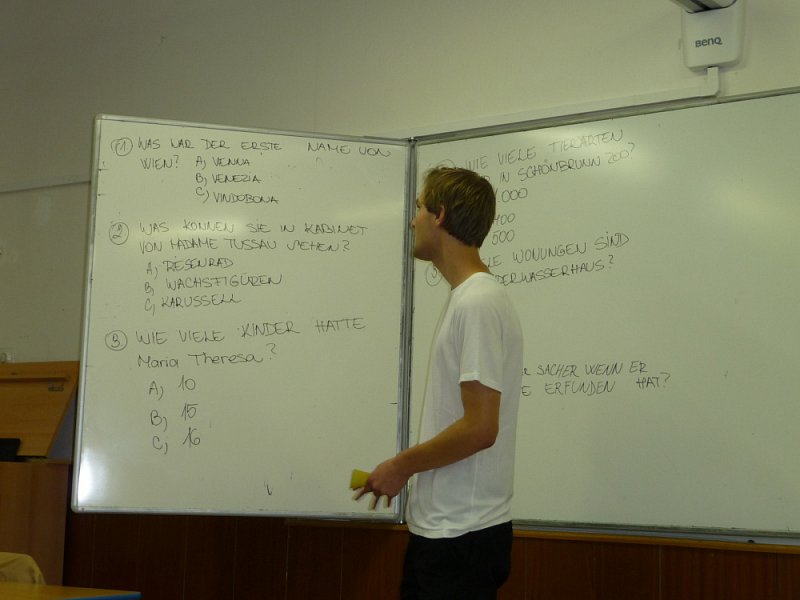 1 WAS WAR DER ERSTE NAME VON
WIEN? A) VENNA
B) VENEZIA
C) VINDOBONA
2 WAS KÖNNEN SIE IN KABINET
VON MADAME TUSSAU SEHEN?
A) RIESENRAD
B) WACHSFIGÜREN
C) KARUSSELL
3 WIE VIELE KINDER HATTE
Maria Theresa?
A) 10
B) 15
C) 16
BENQ
WIE VIELE TIERARTEN
IN SCHÖNBRUNN ZOO?
.000
400
500
5 LE WONUNGEN SIND
DERWASSERHAUS?
SACHER WENN ER
E ERFUNDEN HAT?